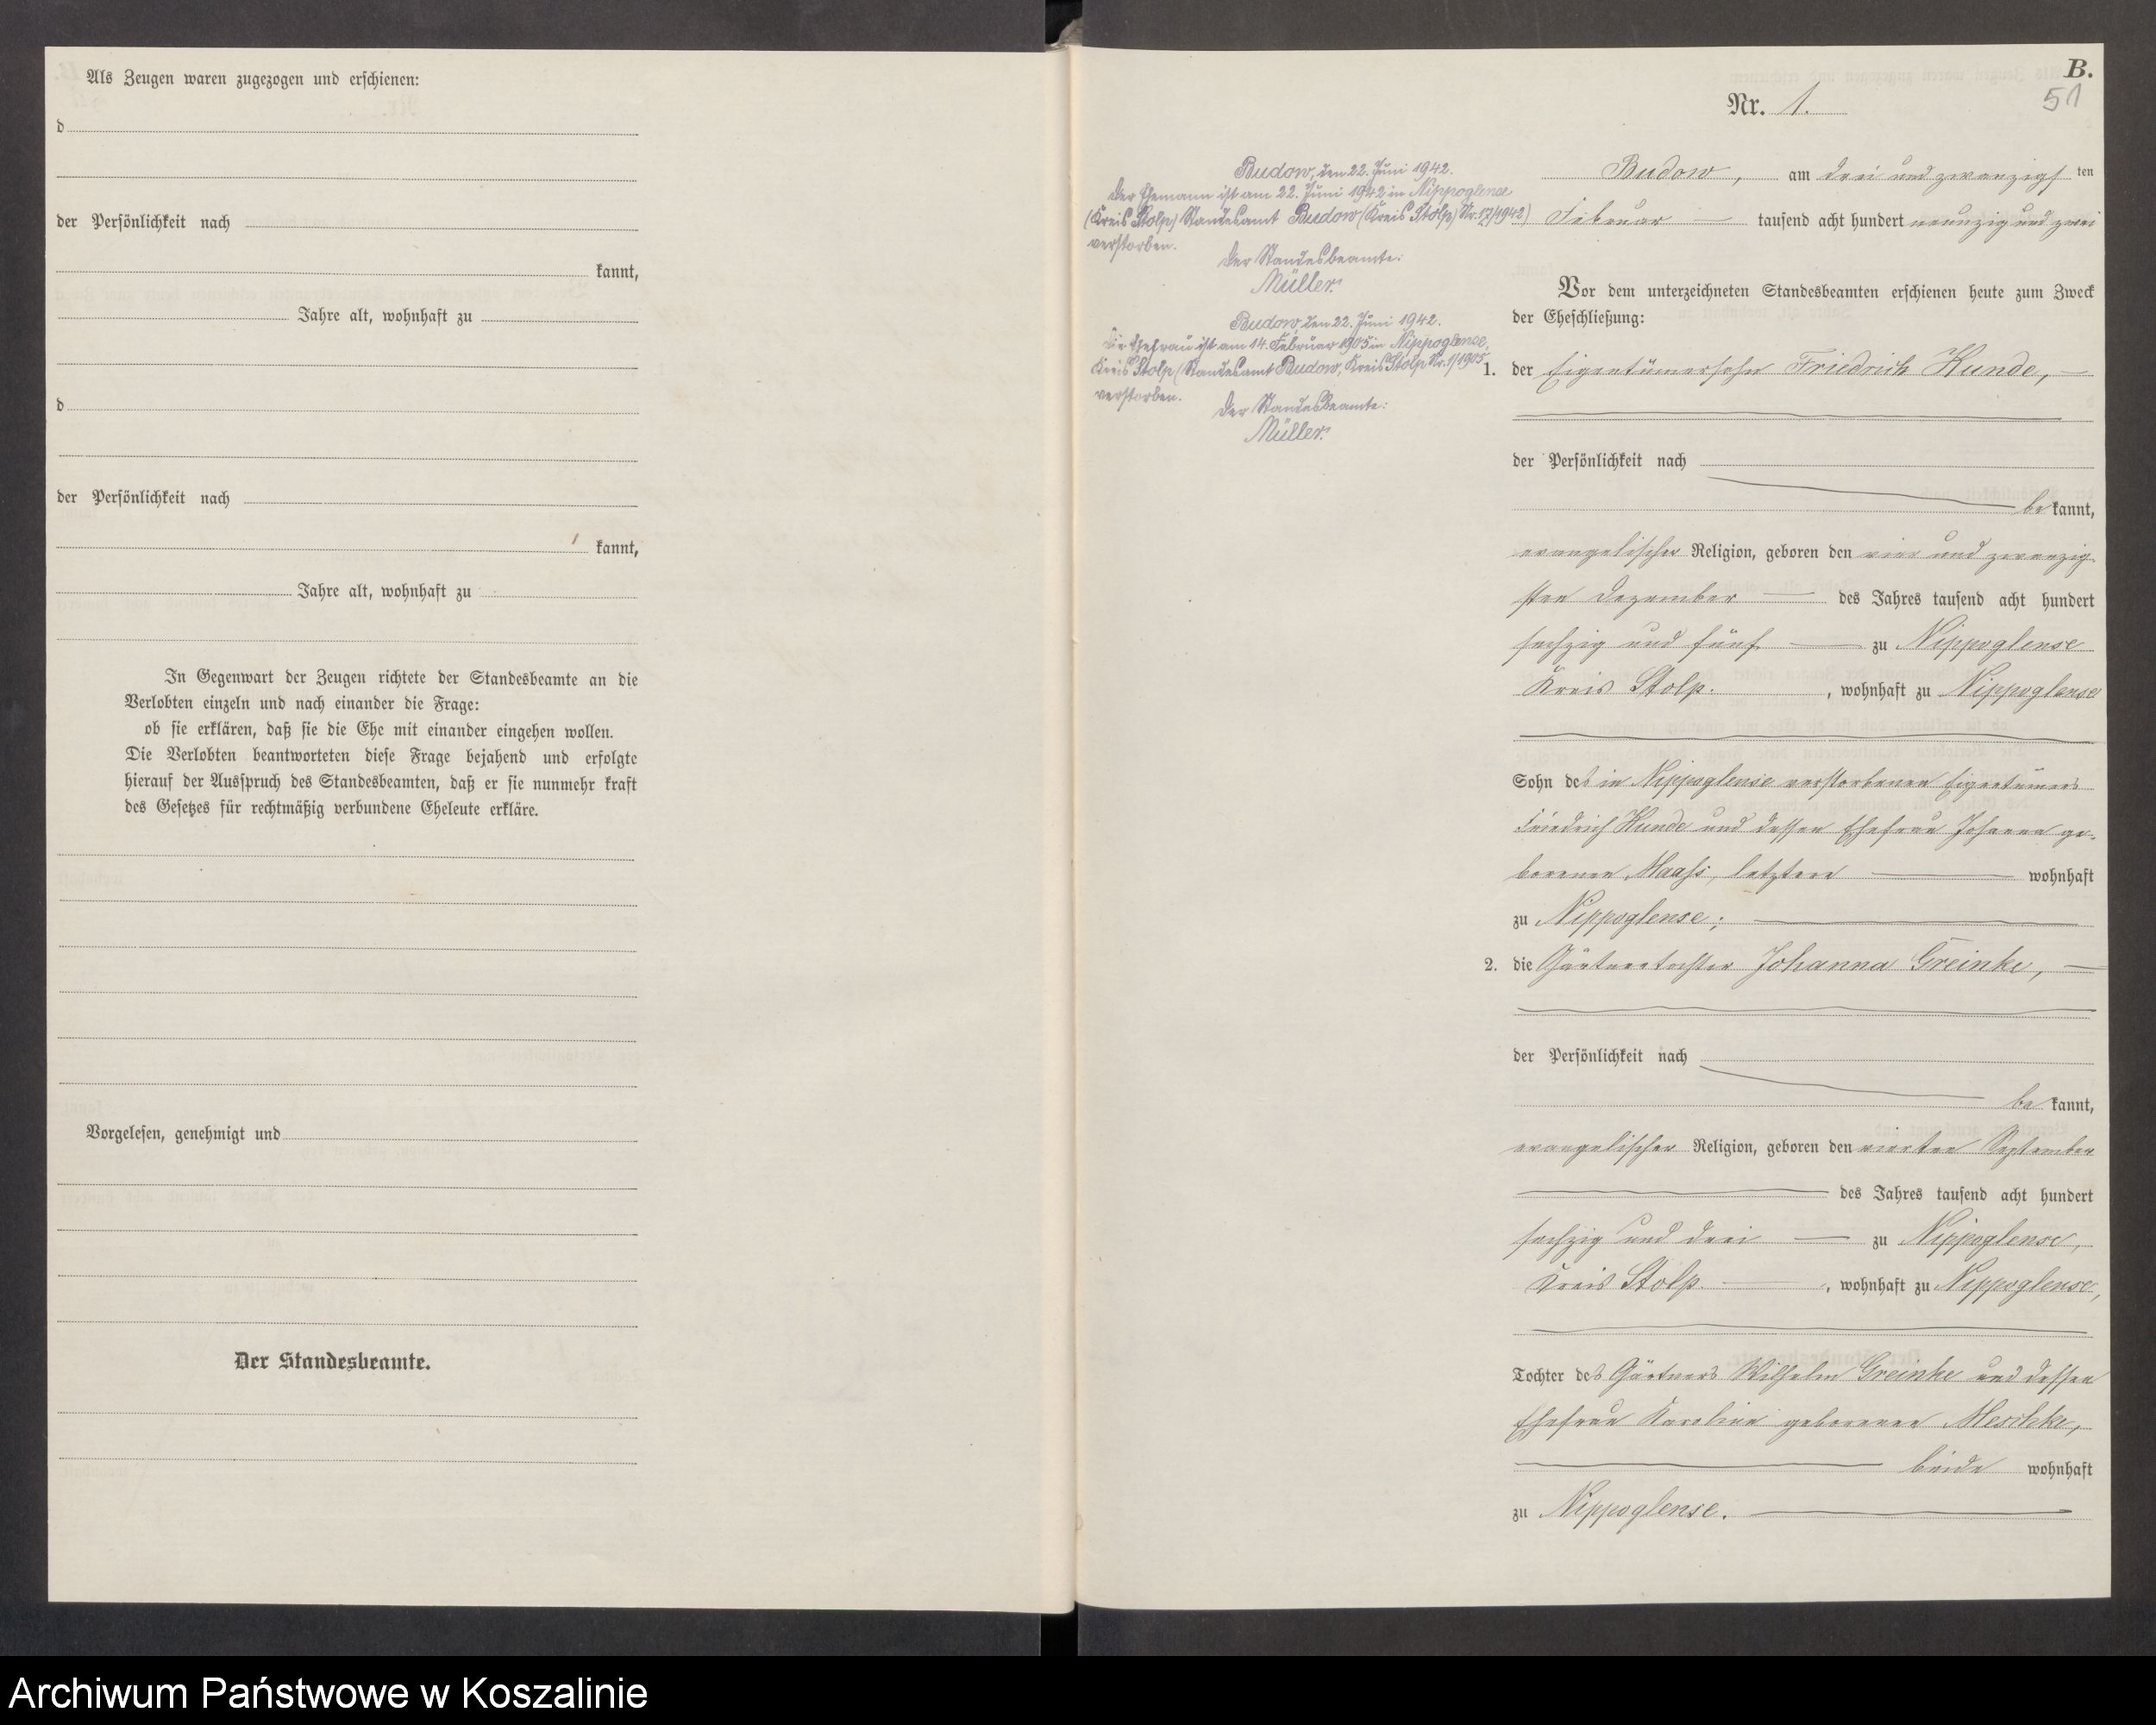 Als Zeugen waren zugezogen und erschienen:
d
der Persönlichkeit nach
kannt,
Jahre alt, wohnhaft zu
d
der Persönlichkeit nach
kannt,
Jahre alt, wohnhaft zu
In Gegenwart der Zeugen richtete der Standesbeamte an die
Verlobten einzeln und nach einander die Frage:
ob sie erklären, daß sie die Ehe mit einander eingehen wollen.
Die Verlobten beantworteten diese Frage bejahend und erfolgte
hierauf der Ausspruch des Standesbeamten, daß er sie nunmehr kraft
des Gesetzes für rechtmäßig verbundene Eheleute erkläre.
Vorgelesen, genehmigt und
Der Standesbeamte.
B.
51
Nr. 1.
Budow, den 22. Juni 1942.
Der Ehemann ist am 22. Juni 1942 in Nippoglense
(Kreis Stolp) Standesamt Budow (Kreis Stolp) Nr. 17/1942)
verstorben.
Der Standesbeamte:
Müller.
Budow, den 22. Juni 1942.
Die Ehefrau ist am 14. Februar 1905 in Nippoglense,
Kreis Stolp (Standesamt Budow, Kreis Stolp Nr. 1/1905
verstorben.
Der Standesbeamte:
Müller.
Budow, am drei und zwanzigsten
Februar tausend acht hundert neunzig und zwei
Vor dem unterzeichneten Standesbeamten erschienen heute zum Zweck
der Eheschließung:
1. der Eigentümersohn Friedrich Hunde,
der Persönlichkeit nach
bekannt,
evangelischer Religion, geboren den vier und zwanzig
sten Dezember des Jahres tausend acht hundert
sechzig und fünf zu Nippoglense
Kreis Stolp. , wohnhaft zu Nippoglense
Sohn des in Nippoglense verstorbenen Eigentümers
Friedrich Hunde und dessen Ehefrau Johanna ge-
borenen Maaß, letztere wohnhaft
zu Nippoglense;
2. die Gärtnertochter Johanna Greinke,
der Persönlichkeit nach
bekannt,
evangelischer Religion, geboren den vierten September
des Jahres tausend acht hundert
sechzig und drei zu Nippoglense,
Kreis Stolp , wohnhaft zu Nippoglense,
Tochter des Gärtners Wilhelm Greinke und dessen
Ehefrau Karoline geborenen Meschke,
beide wohnhaft
zu Nippoglense.
Archiwum Państwowe w Koszalinie